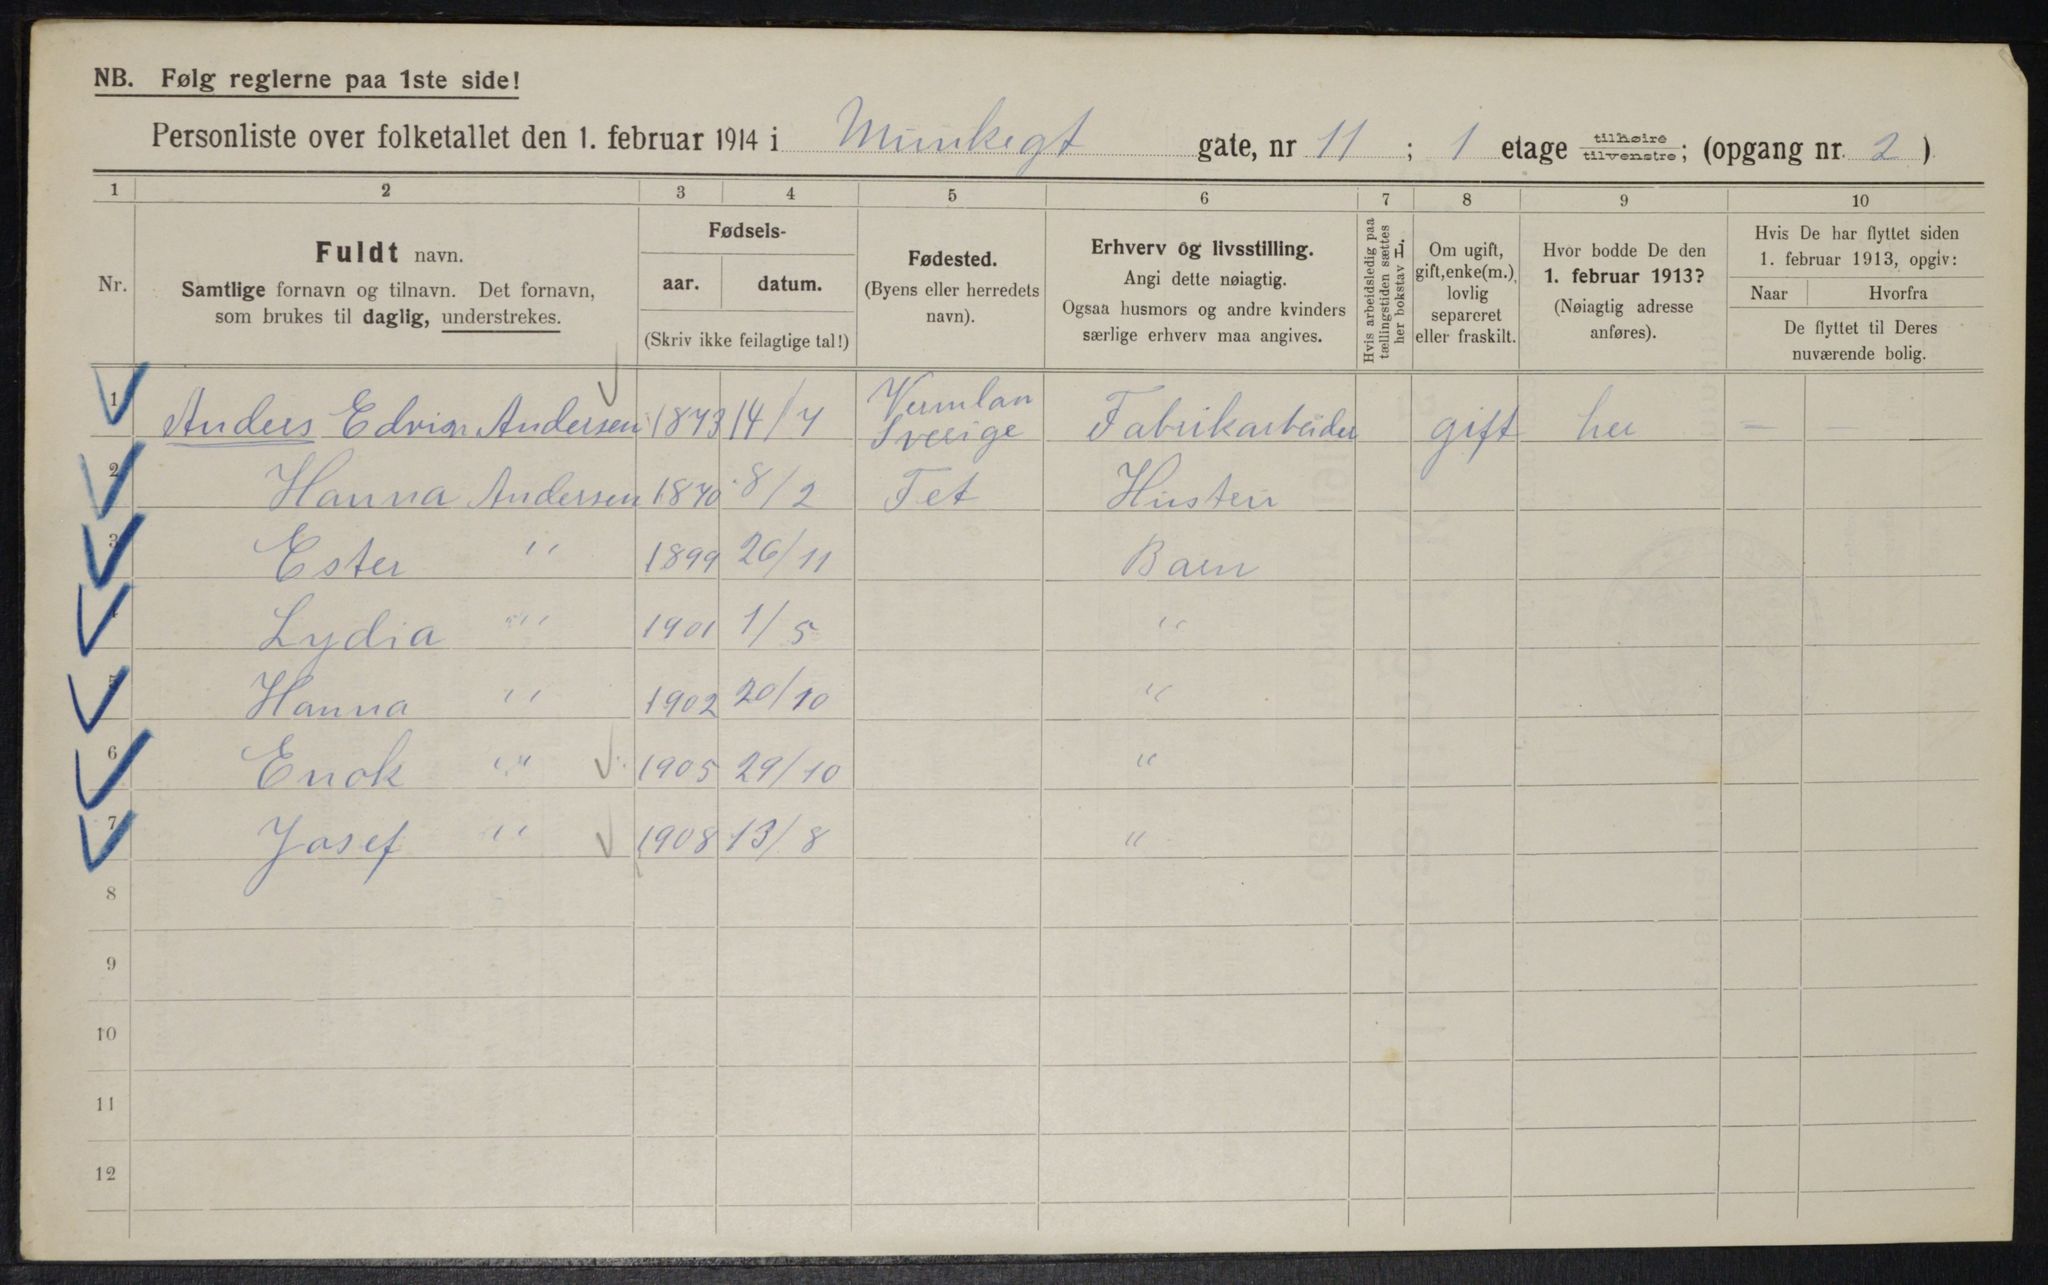 NB. Følg reglerne paa 1ste side!
Personliste over folketallet den 1. februar 1914 i Munkegt gate, nr 11 ; 1 etage tilhøire tilvenstre; (opgang nr. 2 )
1 2 3 4 5 6 7 8 9 10
Nr.
Fuldt navn.
Samtlige fornavn og tilnavn. Det fornavn,
som brukes til daglig, understrekes.
Fødsels-
aar. datum.
(Skriv ikke feilagtige tal!)
Fødested.
(Byens eller herredets
navn).
Erhverv og livsstilling.
Angi dette nøiagtig.
Ogsaa husmors og andre kvinders
særlige erhverv maa angives.
Hvis arbeidsledig paa
tællingstiden sættes
her bokstav L.
Om ugift,
gift, enke(m.),
lovlig
separeret
eller fraskilt.
Hvor bodde De den
1. februar 1913?
(Nøiagtig adresse
anføres).
Hvis De har flyttet siden
1. februar 1913, opgiv:
Naar Hvorfra
De flyttet til Deres
nuværende bolig.
1 Anders Edvin Andersen 1873 14/7 Vermlan Sverige Fabrikarbeider gift her – –
2 Hanna Andersen 1870 8/2 Fet Husten
3 Ester " 1899 26/11 Barn
4 Lydia " 1901 1/5 "
5 Hanna " 1902 20/10 "
6 Enok " 1905 29/10 "
7 Josef " 1908 13/8 "
8
9
10
11
12